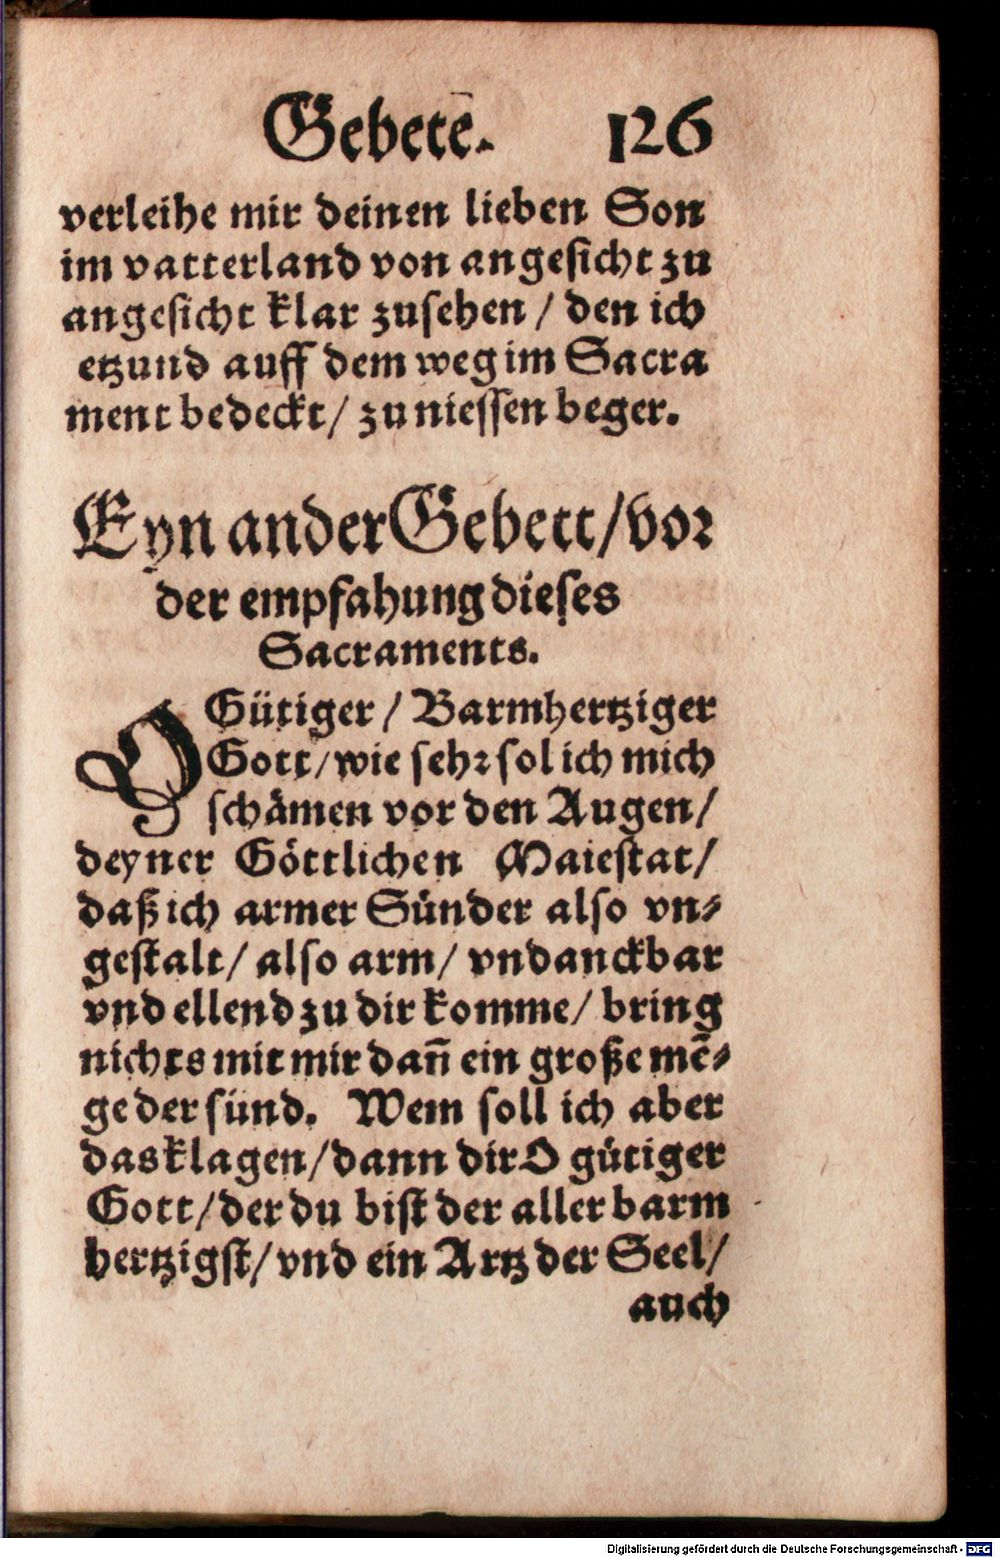 Gebete. 126
verleihe mir deinen lieben Son
im vatterland von angesicht zu
angesicht klar zusehen / den ich
etzund auff dem weg im Sacra
ment bedeckt / zu niessen beger.
Eyn ander Gebett / vor
der empfahung dieses
Sacraments.
O Gütiger / Barmhertziger
Gott / wie sehr sol ich mich
schämen vor den Augen /
deyner Göttlichen Maiestat /
daß ich armer Sünder also vn-
gestalt / also arm / vndanckbar
vnd ellend zu dir komme / bring
nichts mit mir dañ ein große mẽ-
ge der sünd. Wem soll ich aber
das klagen / dann dir O gütiger
Gott / der du bist der aller barm
hertzigst / vnd ein Artz der Seel /
auch
Digitalisierung gefördert durch die Deutsche Forschungsgemeinschaft - DFG